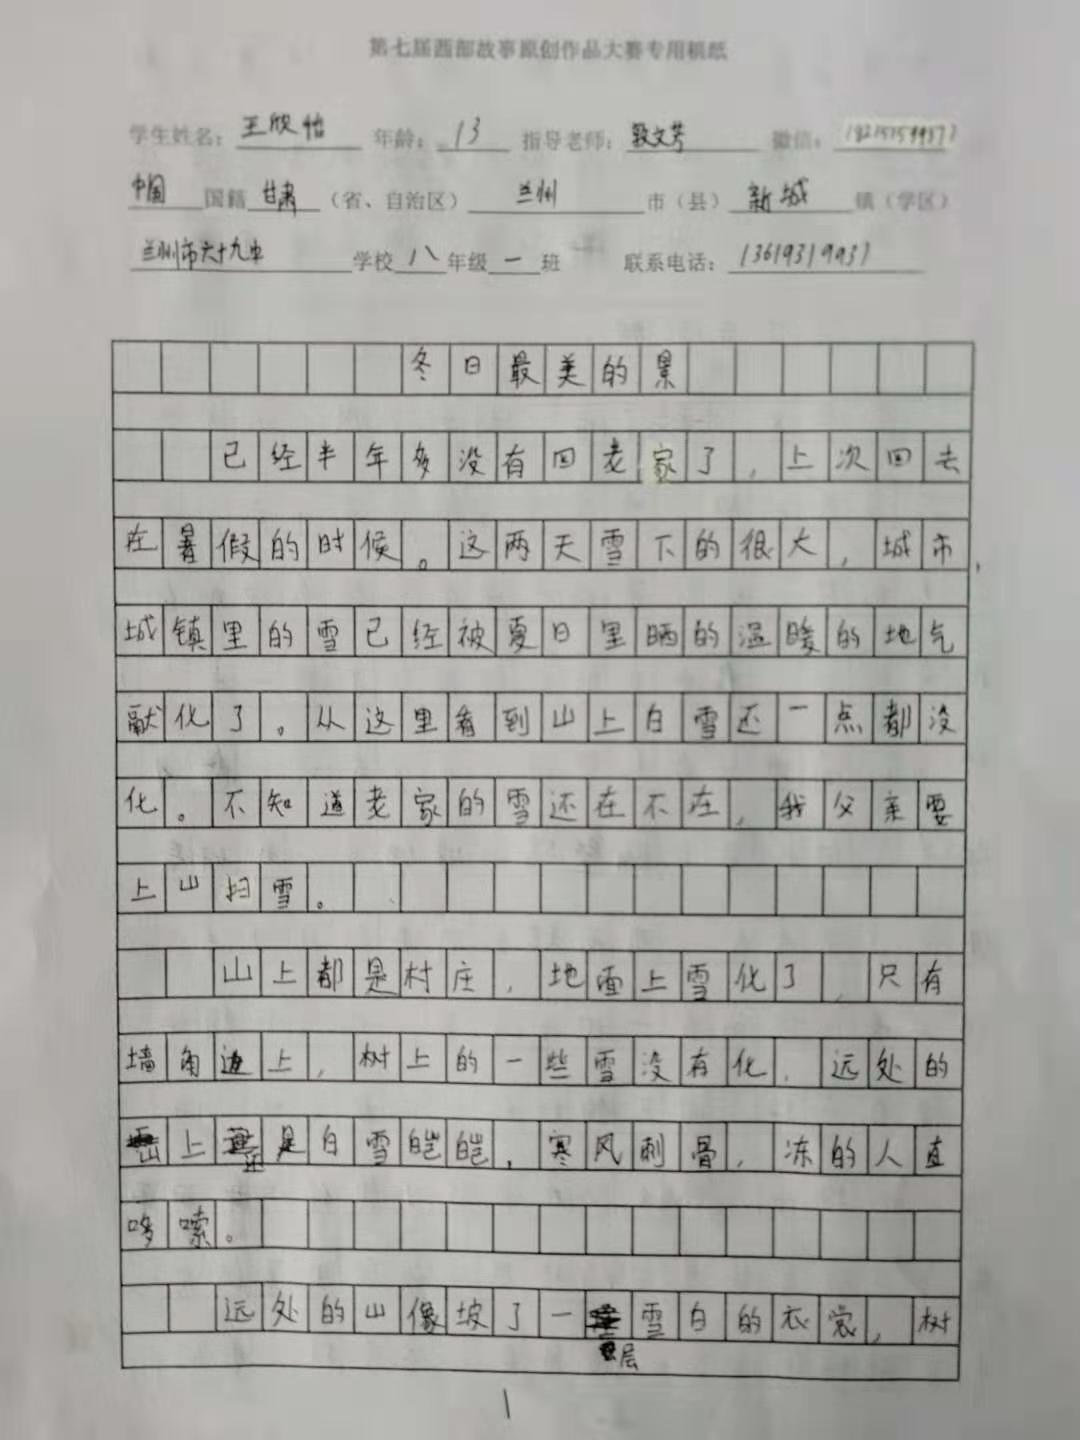 第七届西部故事原创作品大赛专用稿纸
学生姓名：王欣怡 年龄：13 指导老师：文芳 微信：
中国国籍甘肃（省、自治区）兰州市（县）新城镇（学区）
兰州市六十九中学校八年级一班 联系电话：13619319937
冬日最美的景
已经半年多没有回老家了，上次回去
在暑假的时候。这两天雪下的很大，城市，
城镇里的雪已经被夏日里晒的温暖的地气
融化了。从这里看到山上白雪还一点都没
化。不知道老家的雪还在不在，我父亲要
上山扫雪。
山上都是村庄，地面上雪化了，只有
墙角边上，树上的一些雪没有化，远处的
山上还是白雪皑皑，寒风刺骨，冻的人直
哆嗦。
远处的山像坡了一层雪白的衣裳，树
1